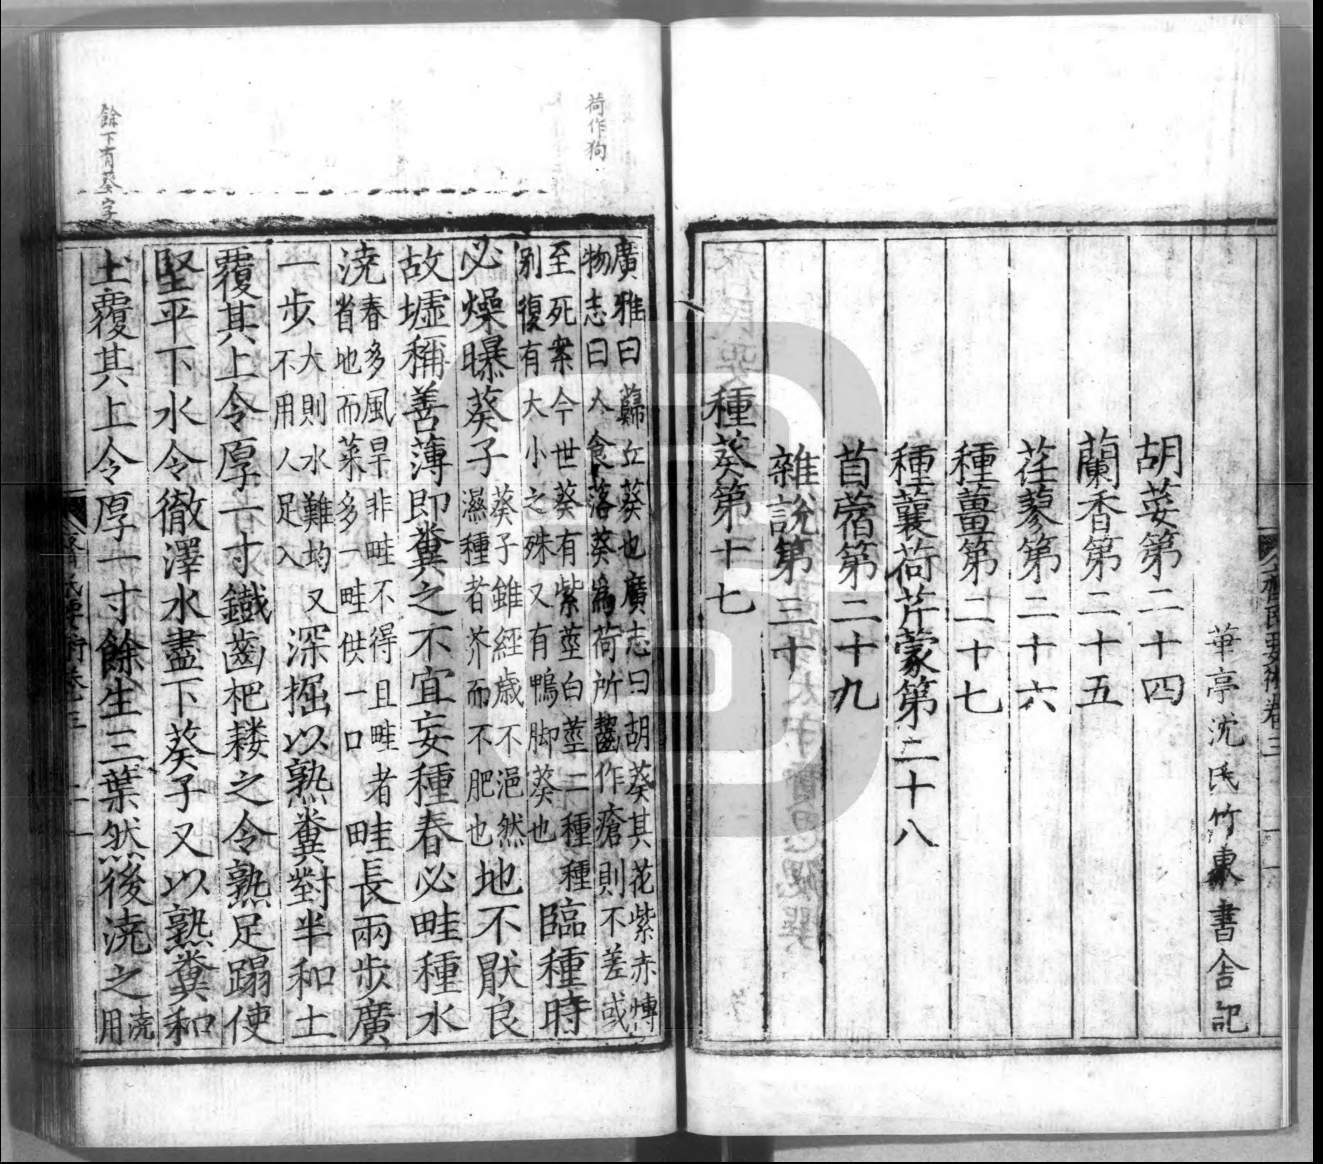 齊民要術卷三
華亭沈氏竹東書舍記
胡荽第二十四
蘭香第二十五
荏蓼第二十六
種薑第二十七
種蘘荷芹蒙第二十八
苜蓿第二十九
雜說第三十
種葵第十七
荷作狗
廣雅曰蘬丘葵也廣志曰胡葵其花紫赤慱
物志曰人食落葵為荷所齧作瘡則不差或
至死案今世葵有紫莖白莖二種種
別復有大小之殊又有鴨脚葵也
臨種時
必燥曝葵子
葵子雖經歲不浥然
濕種者芥而不肥也
地不厭良
故墟稱善薄即糞之不宜妄種春必畦種水
澆
春多風旱非畦不得且畦者
省地而菜多一畦供一口
畦長兩步廣
一步
大則水難均又
不用人足入
深掘以熟糞對半和土
覆其上令厚一寸鐵齒杷耬之令熟足蹋使
堅平下水令徹澤水盡下葵子又以熟糞和
餘下有葵字
土覆其上令厚一寸餘生三葉然後澆之
澆
用
齊民要術卷三
二